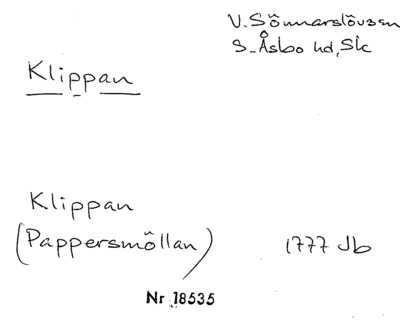 V. Sönnarslövssn
S. Åsbo hd, Sk
Klippan
Klippan
(Pappersmöllan)
1777 Jb
Nr 18535